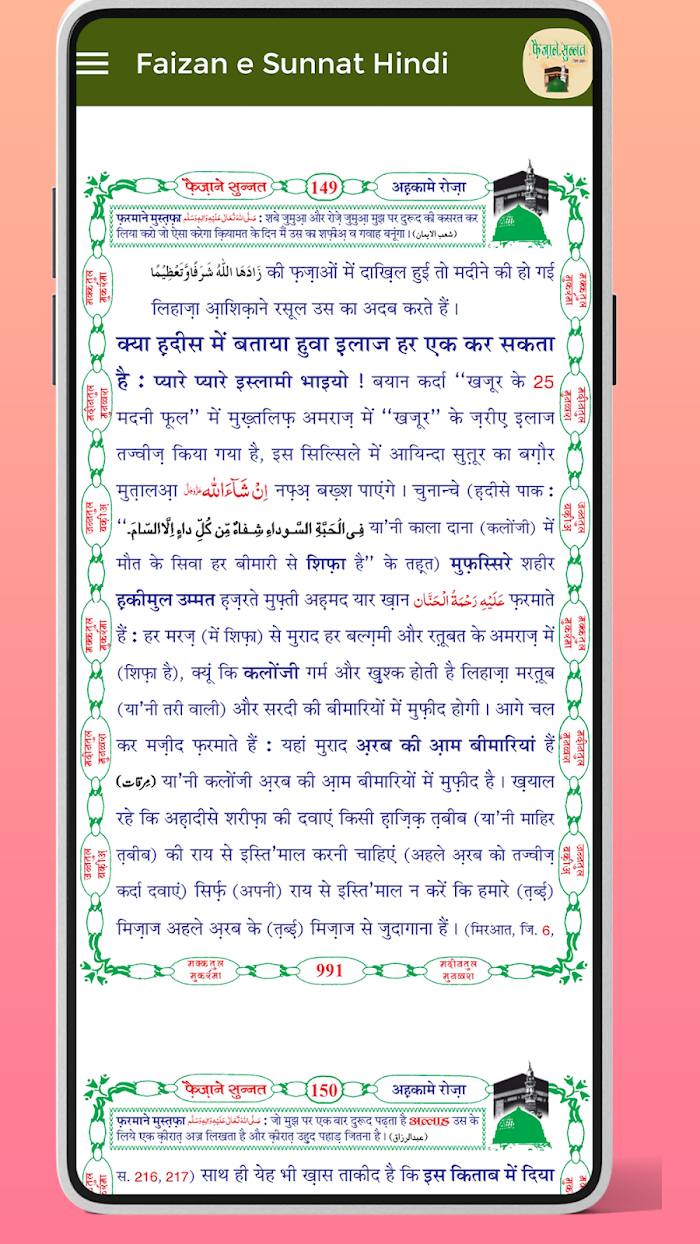 Faizan e Sunnat Hindi
फ़ैज़ाने सुन्नत
फ़ैज़ाने सुन्नत 149 अहकामे रोज़ा
फ़रमाने मुस्त़फ़ा صلى الله تعالى عليه واله وسلم : शबे जुमुआ़ और रोज़े जुमुआ़ मुझ पर दुरूद की कसरत कर
लिया करो जो ऐसा करेगा क़ियामत के दिन मैं उस का शफ़ीअ़ व गवाह बनूंगा। (شعب الایمان)
زَادَهَا اللّٰهُ شَرَفًاوَّتَعْظِيْمًا की फ़ज़ाओं में दाख़िल हुई तो मदीने की हो गई
लिहाज़ा आ़शिक़ाने रसूल उस का अदब करते हैं।
क्या ह़दीस में बताया हुवा इलाज हर एक कर सकता
है : प्यारे प्यारे इस्लामी भाइयो ! बयान कर्दा ‘‘खजूर के 25
मदनी फूल’’ में मुख़्तलिफ़ अमराज़ में ‘‘खजूर’’ के ज़रीए़ इलाज
तज्वीज़ किया गया है, इस सिल्सिले में आयिन्दा सुत़ूर का बग़ौर
मुत़ालआ़ اِنْ شَآءَاللّٰه عزوجل नफ़्अ़ बख़्श पाएंगे। चुनान्चे (ह़दीसे पाक :
‘‘فِى الْحَبَّةِ السَّوداءِ شِفاءٌ مِّن كُلِّ داءٍ اِلَّا السَّامَ۔ या'नी काला दाना (कलोंजी) में
मौत के सिवा हर बीमारी से शिफ़ा है’’ के तह़त) मुफ़स्सिरे शहीर
ह़कीमुल उम्मत ह़ज़रते मुफ़्ती अह़मद यार ख़ान عَلَيْهِ رَحْمَةُ الْحَنَّان फ़रमाते
हैं : हर मरज़ (में शिफ़ा) से मुराद हर बल्ग़मी और रत़ूबत के अमराज़ में
(शिफ़ा है), क्यूं कि कलोंजी गर्म और ख़ुश्क होती है लिहाज़ा मरत़ूब
(या'नी तरी वाली) और सरदी की बीमारियों में मुफ़ीद होगी। आगे चल
कर मज़ीद फ़रमाते हैं : यहां मुराद अ़रब की आ़म बीमारियां हैं
(مرقات) या'नी कलोंजी अ़रब की आ़म बीमारियों में मुफ़ीद है। ख़याल
रहे कि अह़ादीसे शरीफ़ा की दवाएं किसी ह़ाज़िक़ त़बीब (या'नी माहिर
त़बीब) की राय से इस्ति'माल करनी चाहिएं (अहले अ़रब को तज्वीज़
कर्दा दवाएं) सिर्फ़ (अपनी) राय से इस्ति'माल न करें कि हमारे (त़ब्ई़)
मिज़ाज अहले अ़रब के (त़ब्ई़) मिज़ाज से जुदागाना हैं। (मिरआत, जि. 6,
मक्कतुल मुकर्रमा
मदीनतुल मुनव्वरा
जन्नतुल बक़ीअ़
मक्कतुल मुकर्रमा
मदीनतुल मुनव्वरा
जन्नतुल बक़ीअ़
मक्कतुल मुकर्रमा
मदीनतुल मुनव्वरा
जन्नतुल बक़ीअ़
मक्कतुल मुकर्रमा
मदीनतुल मुनव्वरा
जन्नतुल बक़ीअ़
मक्कतुल मुकर्रमा 991 मदीनतुल मुनव्वरा
फ़ैज़ाने सुन्नत 150 अहकामे रोज़ा
फ़रमाने मुस्त़फ़ा صلى الله تعالى عليه واله وسلم : जो मुझ पर एक बार दुरूद पढ़ता है उस के
लिये एक क़ीरात़ अज्र लिखता है और क़ीरात़ उह़ुद पहाड़ जितना है। (عبدالرزاق)
स. 216, 217) साथ ही येह भी ख़ास ताकीद है कि इस किताब में दिया